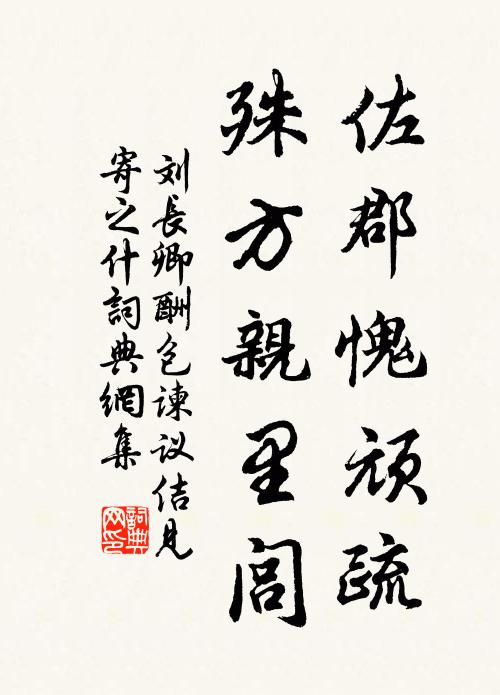 佐郡愧顽疏
殊方親里閭
刘長卿酬包諫议佶见
寄之什詞典網集
詞典网印